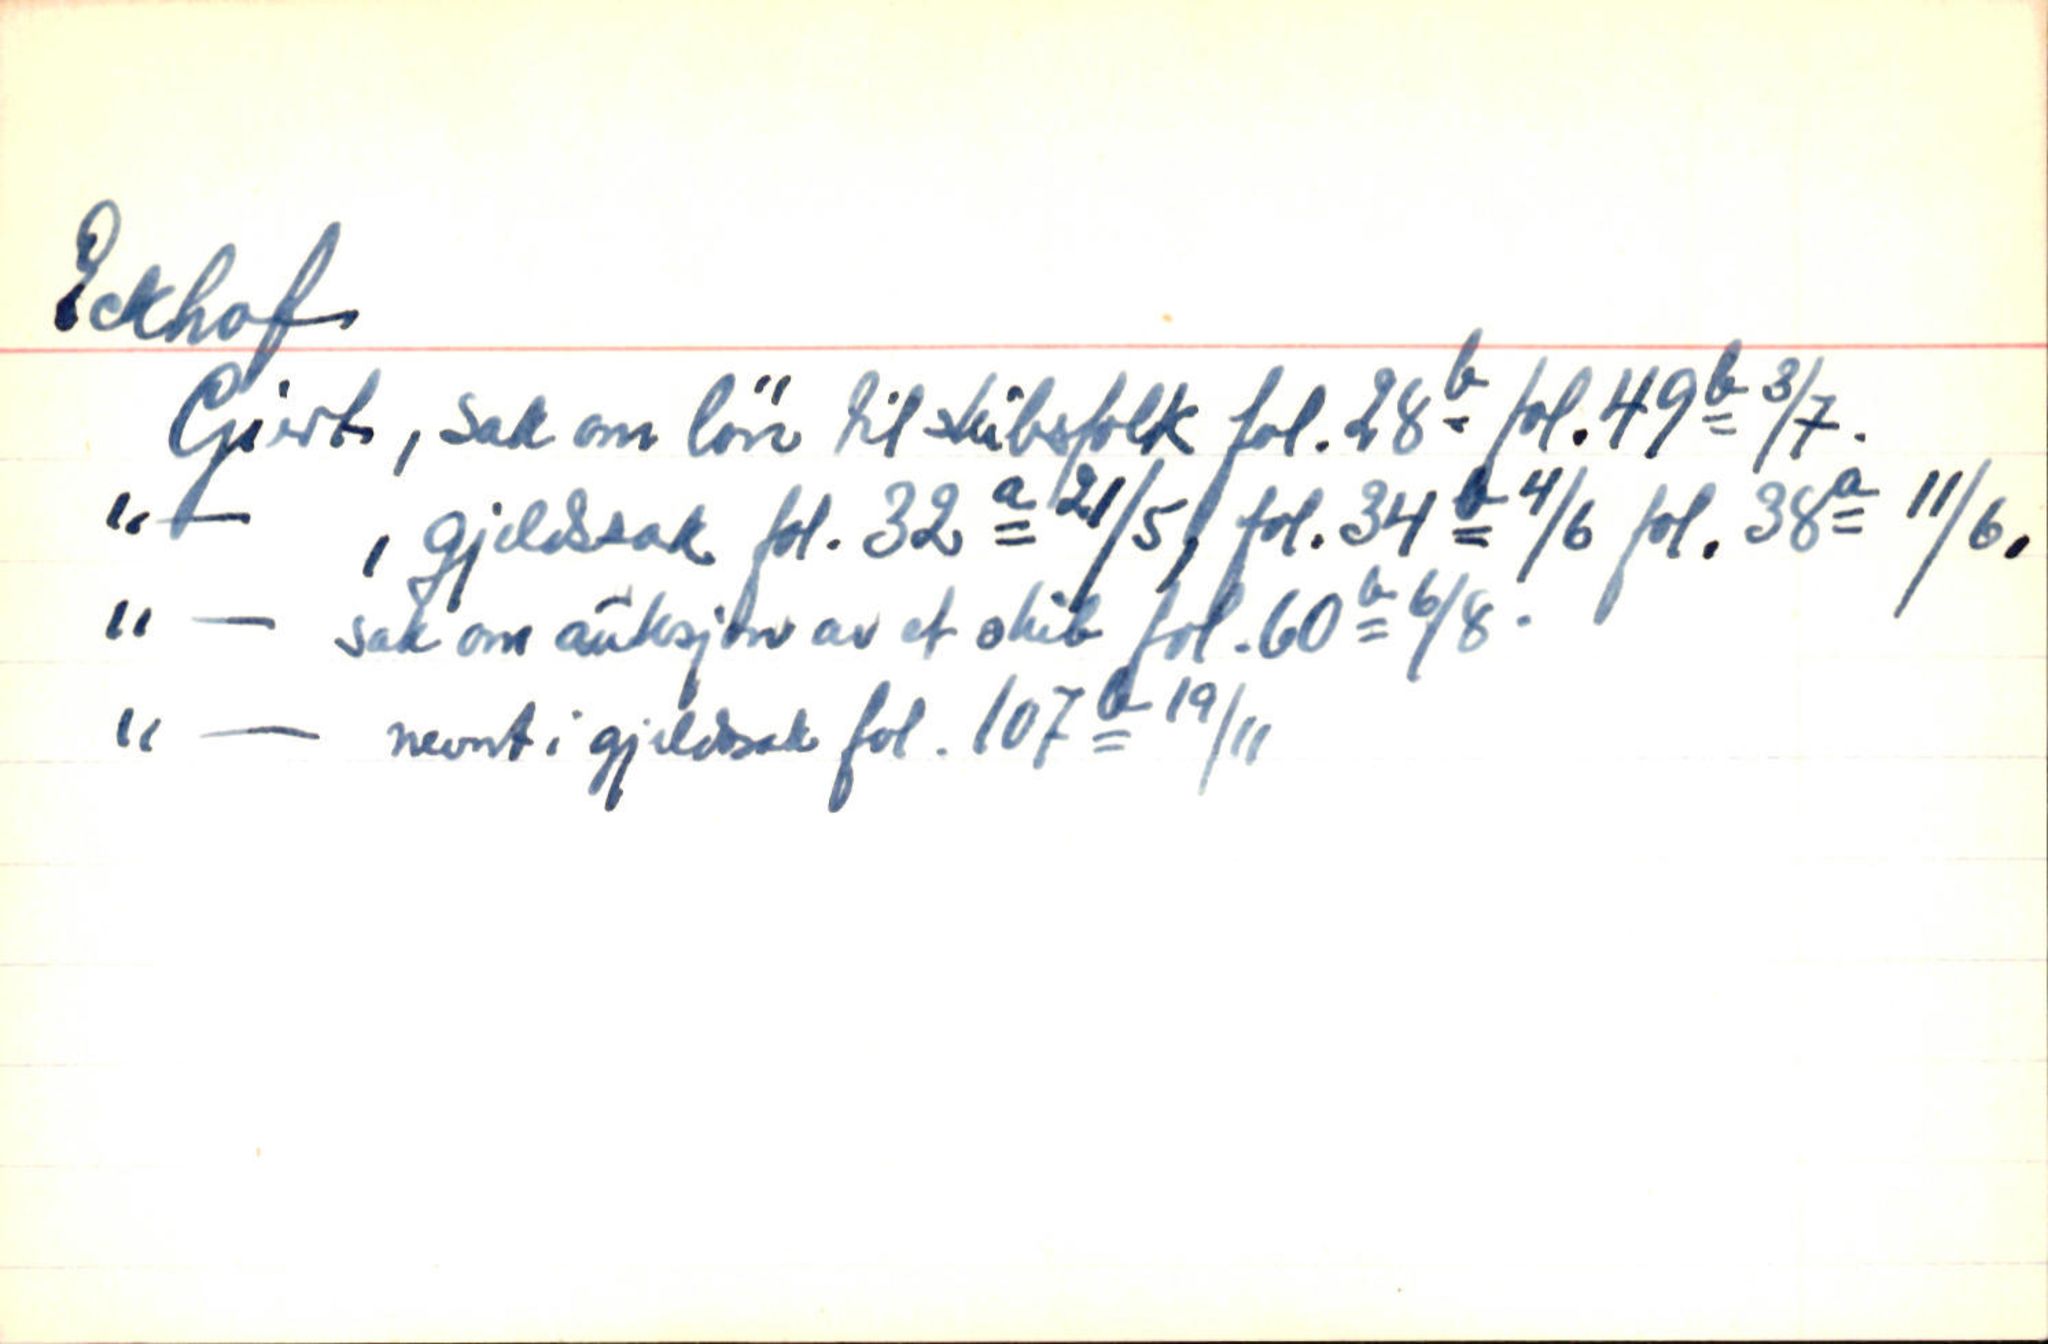 Eckhof
Giert, sak om lön til skibsfolk fol. 28b fol. 49b 3/7.
"— , gjeldssak fol. 32a 21/5, fol. 34b 4/6 fol. 38a 11/6.
"— sak om auksjon av et skib fol. 60b 6/8.
"— nevnt i gjeldssak fol. 107b 19/11